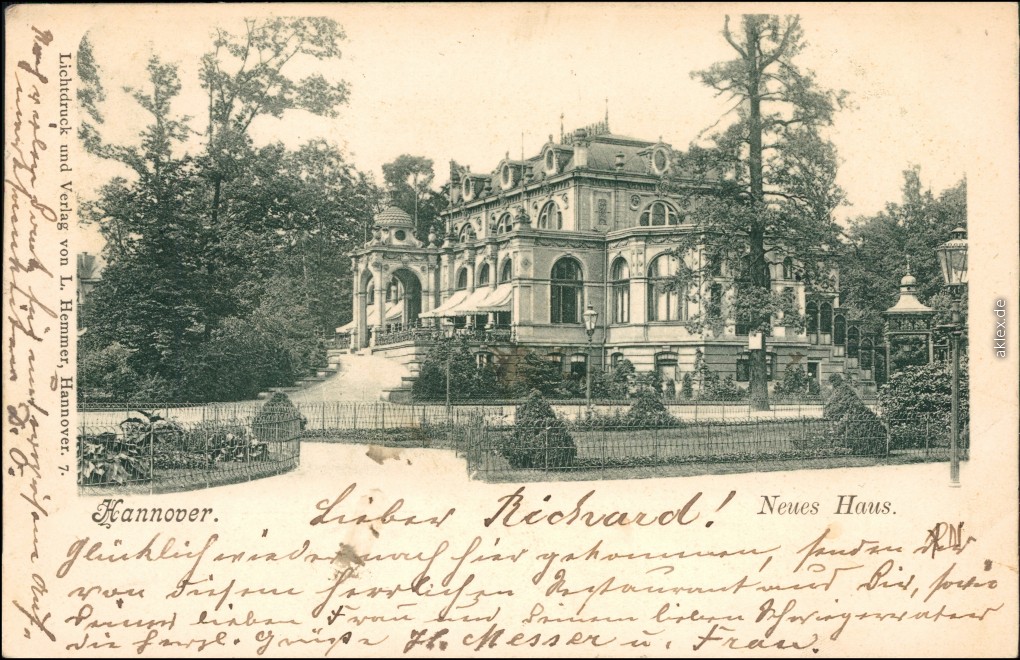 Hannover.
Neues Haus.
Lieber Richard!
Glücklich wieder nach hier gekommen, senden wir
von diesem herrlichen Restaurant aus Dir, sowie
Deiner lieben Frau und Deinem lieben Schwiegervater
die herzl. Grüße H. Messer u. Frau.
Lichtdruck und Verlag von L. Hemmer, Hannover. 7.
Dank für
D. O.
aklex.de